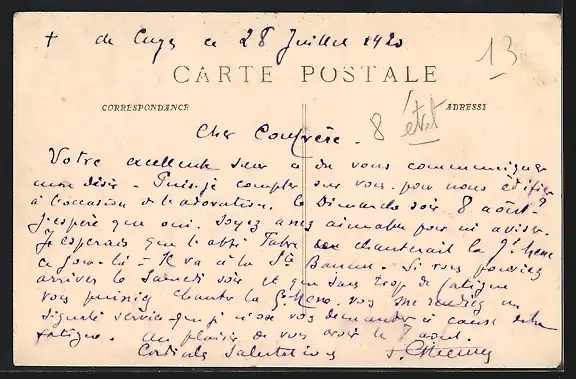 + de Cuges ce 28 Juillet 1920
13
CARTE POSTALE
CORRESPONDANCE
ADRESSE
Cher Confrère.
8
Votre excellente sœur a dû vous communiquer
mon désir. Puis-je compter sur vous pour nous édifier
à l'occasion de l'adoration, le Dimanche soir 8 août?
J'espère que oui. Soyez assez aimable pour m'aviser.
J'espérais que l'abbé Fabre chanterait la gd messe
ce jour-là = Il va à la Ste Baume. Si vous pouviez
arriver le Samedi soir et que sans trop de fatigue
vous puissiez chanter la gd messe. vous me rendriez un
signalé service que je n'ose vous demander à cause de la
fatigue. Au plaisir de vous avoir le 7 août.
Cordiales Salutations